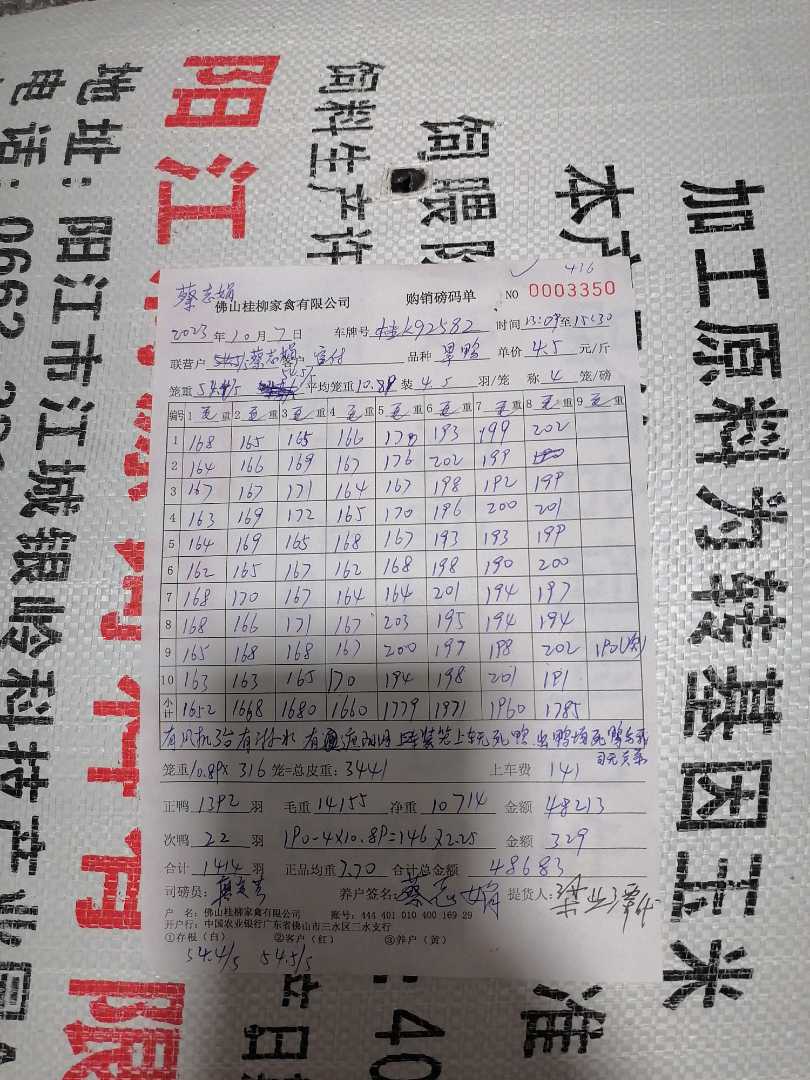 阳江
地址：阳江市江城银岭科技产业园
电话：0662
饲料生产许
饲喂阶
本产
加工原料为转基因玉米
准
限
416
蔡志娟
佛山桂柳家禽有限公司 购销磅码单 NO 0003350
2023年10月7日 车牌号 桂K92582 时间13:09至15:30
联营户 蔡志娟 客户 品种 单价 4.5 元/斤
笼重 54.4/5 54.5/5 平均笼重10.89 装 4.5 羽/笼 称 4 笼/磅
编号 1 毛重 2 毛重 3 毛重 4 毛重 5 毛重 6 毛重 7 毛重 8 毛重 9 毛重
1 168 165 165 166 170 193 199 202
2 164 166 169 167 176 202 199
3 167 167 171 164 167 198 192 199
4 163 169 172 165 170 196 200 201
5 164 169 165 168 167 193 193 199
6 162 165 167 162 168 198 190 200
7 168 170 167 164 164 201 194 197
8 168 166 171 167 203 195 194 194
9 165 168 168 167 200 197 198 202 190(次)
10 163 163 165 170 194 198 201 191
小计 1652 1668 1680 1660 1779 1971 1960 1785
有风机3台有冲水 有 装笼上车无死鸭
司无关系
笼重10.89× 316 笼=总皮重：3441 上车费 141
正鸭 1392 羽 毛重 14155 净重 10714 金额 48213
次鸭 22 羽 190-4×10.89=146×2.25 金额 329
合计 1414 羽 正品均重 7.70 合计总金额 48683
司磅员： 养户签名：蔡志娟 提货人：
户 名：佛山桂柳家禽有限公司 账号：444 401 010 400 169 29
开户行：中国农业银行广东省佛山市三水区三水支行
①存根（白） ②客户（红） ③养户（黄）
54.4/5 54.5/5